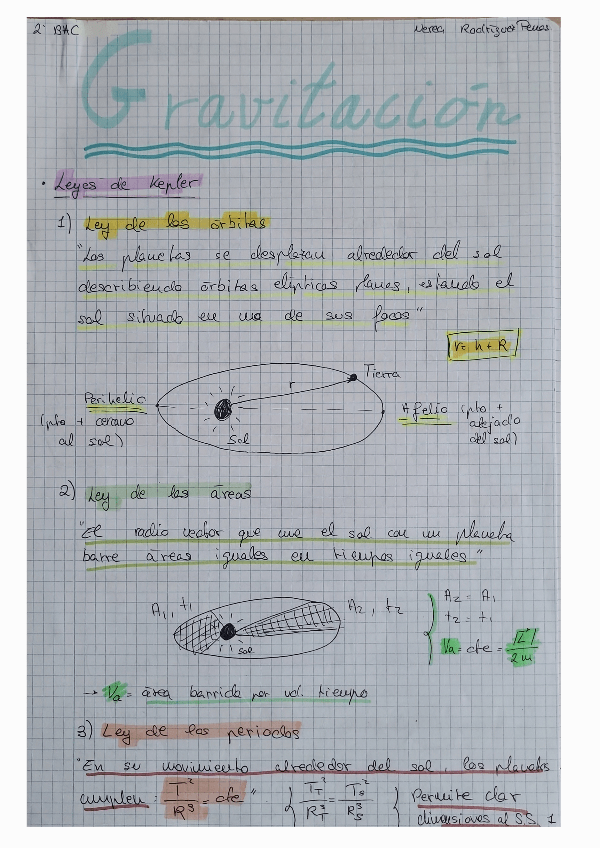 2º BAC
Nerea Rodríguez Penas
Gravitación
· Leyes de Kepler
1) Ley de las órbitas
"Los planetas se desplazan alrededor del sol
describiendo órbitas elípticas planas, estando el
sol situado en uno de sus focos"
r = h + R
Tierra
r
Perihelio
(pto + cercano
al sol)
Sol
Afelio (pto +
alejado
del sol)
2) Ley de las áreas
"El radio vector que une el sol con un planeta
barre áreas iguales en tiempos iguales"
A₁, t₁
A₂, t₂
sol
A₂ = A₁
t₂ = t₁
Va = cte = |L|/2m
→ Va = área barrida por ud. tiempo
3) Ley de los periodos
"En su movimiento alrededor del sol, los planetas
cumplen: T²/R³ = cte"
T_T²/R_T³ = T_S²/R_S³
Permite dar
dimensiones al SS 1